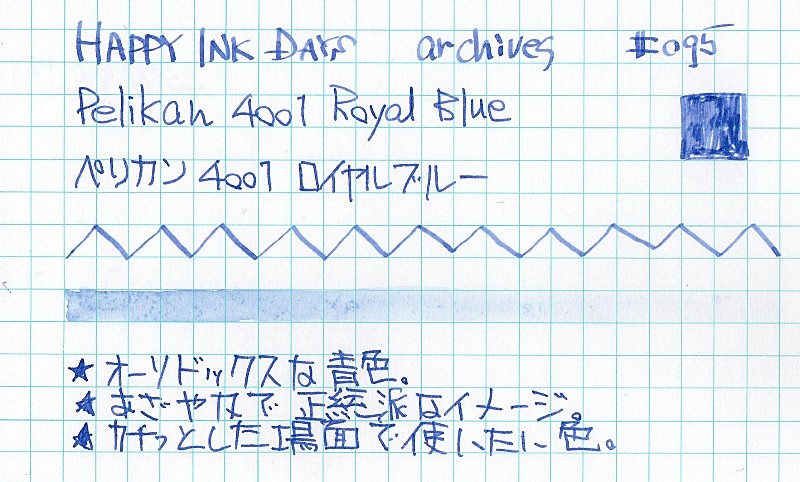 HAPPY INK DAYS archives #095
Pelikan 4001 Royal Blue
ペリカン 4001 ロイヤルブルー
★ オーソドックスな青色。
★ あざやかで正統派なイメージ。
★ カチっとした場面で使いたい色。